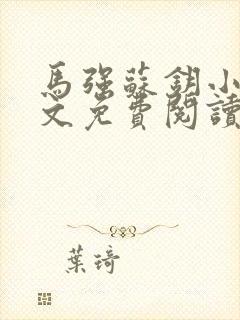 馬強蘇鈅小
文免費閱讀
葉琦